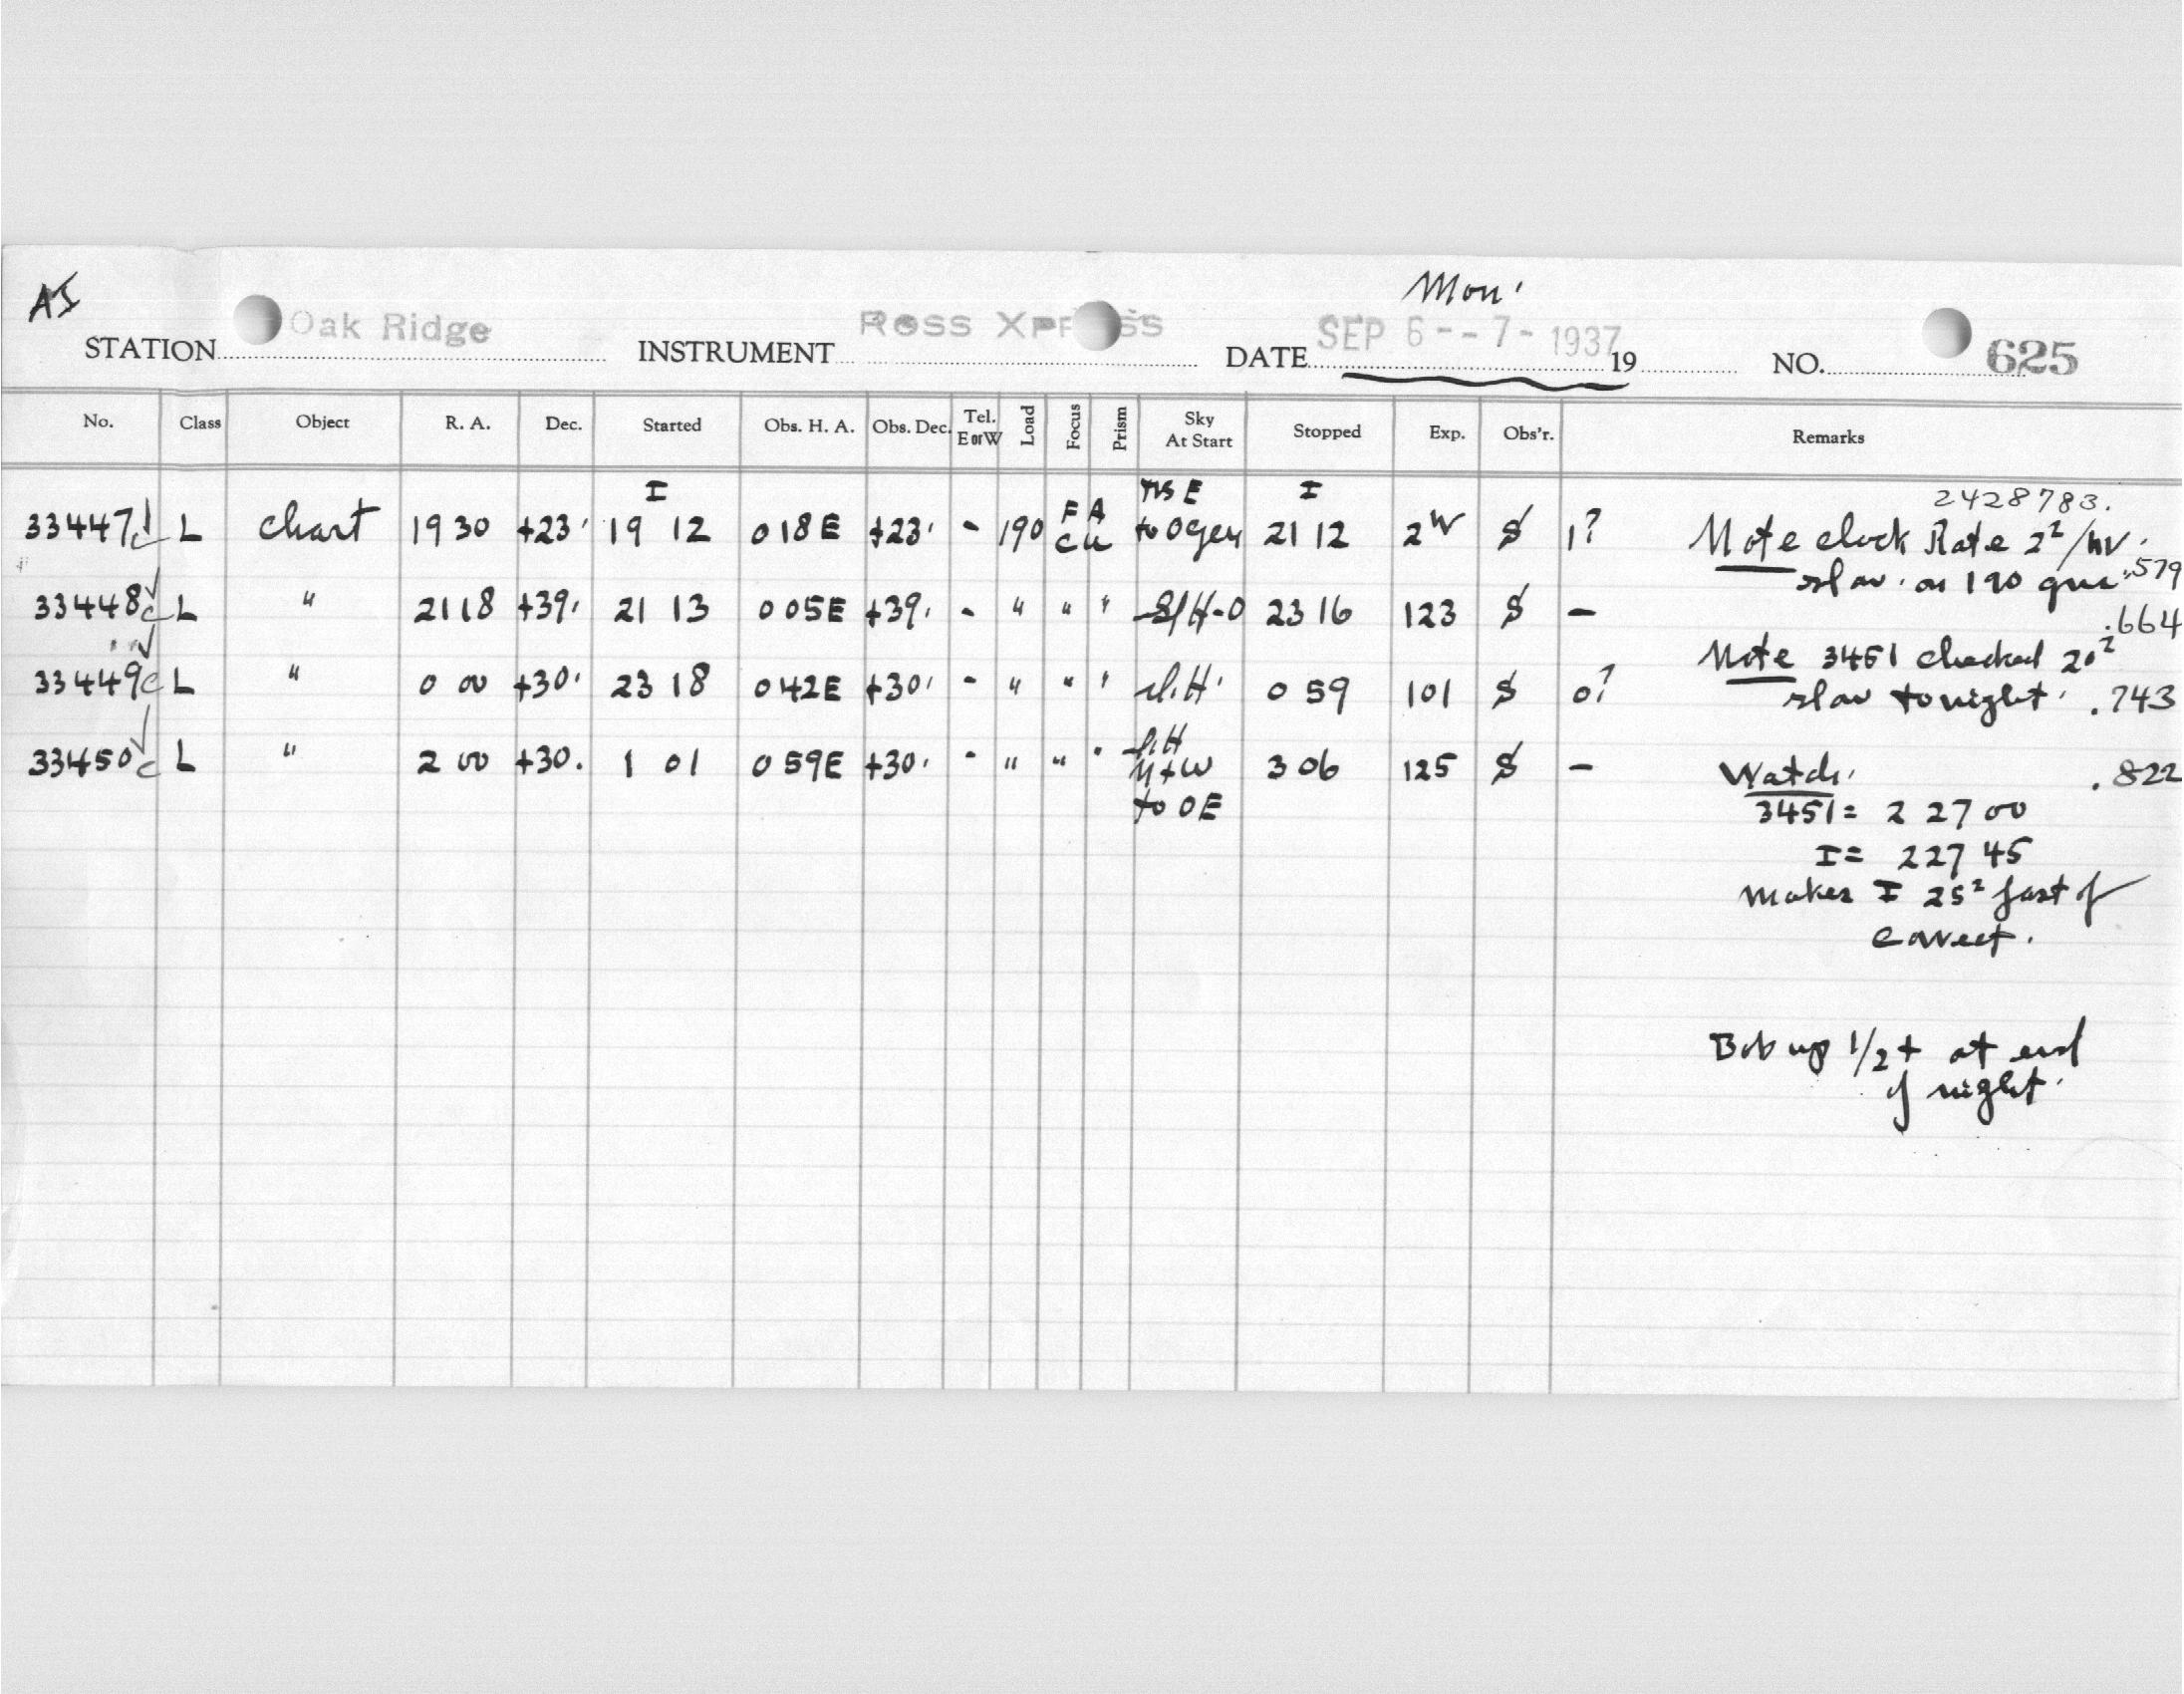 AS
Mon'
STATION Oak Ridge INSTRUMENT Ross Xpress DATE SEP 6 - - 7 - 1937 19 NO. 625
No. Class Object R. A. Dec. Started Obs. H. A. Obs. Dec. Tel. E or W Load Focus Prism Sky At Start Stopped Exp. Obs'r. Remarks
I I 2428783.
33447 c L Chart 19 30 +23 19 12 0 18 E +23 - 190 F A to 21 12 2 1? Note clock Rate 2 /hr.
slow on 190 .579
33448 c L " 21 18 +39 21 13 0 05 E +39 - " " " 23 16 123 - .664
33449 c L " 0 00 +30 23 18 0 42 E +30 - " " " 0 59 101 0? Note 3451 checked 20
slow tonight .743
33450 c L " 2 00 +30 1 01 0 59 E +30 - " " " N+W 3 06 125 - .822
to 0 E
Watch
3451 = 2 27 00
I = 2 27 45
makes I 25 fast of
correct.
Bob up 1/2 + at end
of night.